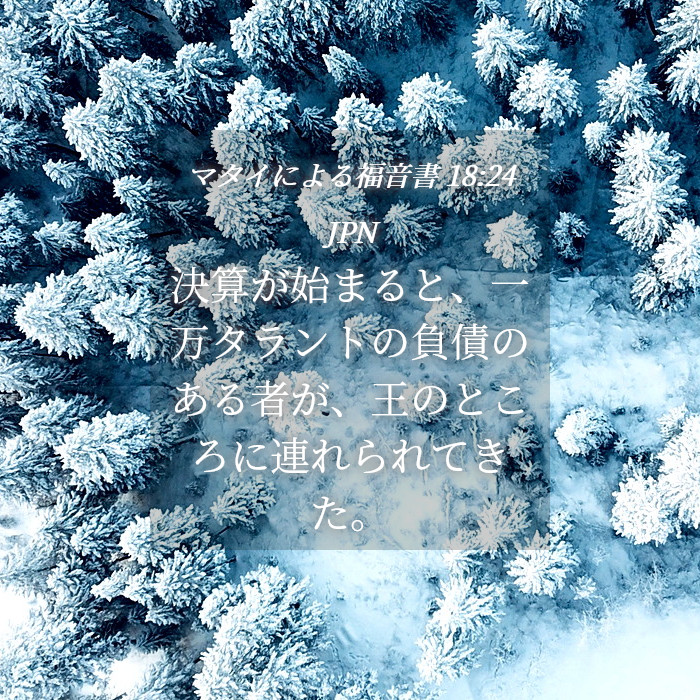 マタイによる福音書 18:24
JPN
決算が始まると、一
万タラントの負債の
ある者が、王のとこ
ろに連れられてき
た。